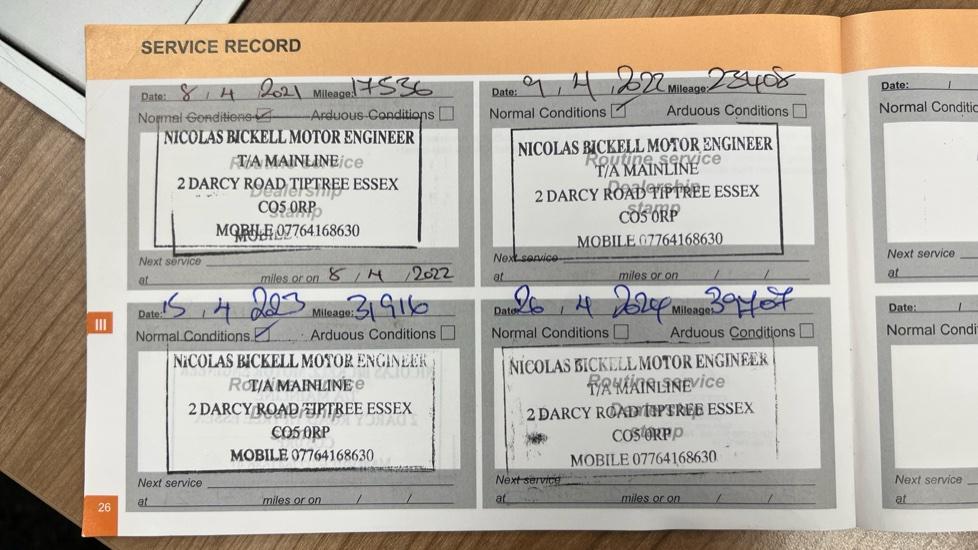 SERVICE RECORD
Date: 8 / 4 2021 Mileage: 17536
Normal Conditions Arduous Conditions
NICOLAS BICKELL MOTOR ENGINEER
Routine service
T/A MAINLINE
2 DARCY ROAD TIPTREE ESSEX
Dealership
CO5 0RP
stamp
MOBILE 07764168630
Next service
at miles or on 8 / 4 / 2022
Date: 9 / 4 / 2022 Mileage: 23408
Normal Conditions Arduous Conditions
NICOLAS BICKELL MOTOR ENGINEER
Routine service
T/A MAINLINE
2 DARCY ROAD TIPTREE ESSEX
Dealership
stamp
CO5 0RP
MOBILE 07764168630
Next service
at miles or on / /
Date: /
Normal Conditio
Next service
at
III
Date: 15 / 4 Mileage: 31916
Normal Conditions Arduous Conditions
NICOLAS BICKELL MOTOR ENGINEER
T/A MAINLINE
2 DARCY ROAD TIPTREE ESSEX
Dealership
CO5 0RP
MOBILE 07764168630
Next service
at miles or on / /
Date: 26 / 4 2024 Mileage:
Normal Conditions Arduous Conditions
NICOLAS BICKELL MOTOR ENGINEER
Routine service
T/A MAINLINE
2 DARCY ROAD TIPTREE ESSEX
CO5 0RP
stamp
MOBILE 07764168630
Next service
at miles or on / /
Date: /
Normal Condi
Next service
at
26